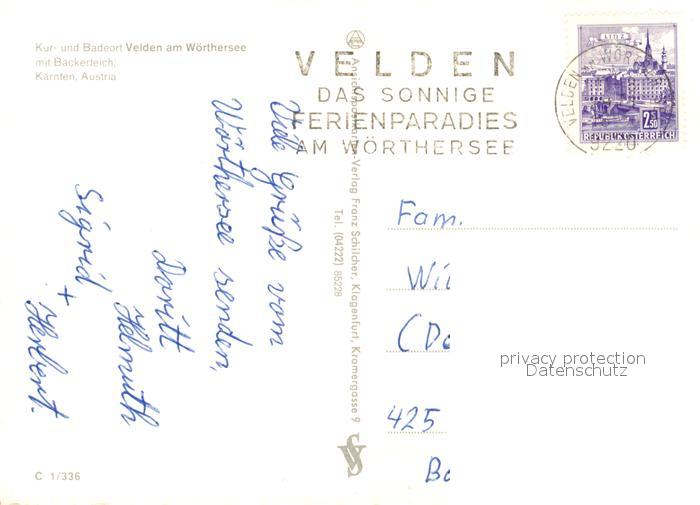 Kur- und Badeort Velden am Wörthersee
mit Bäckerteich;
Kärnten, Austria
VELDEN
DAS SONNIGE
FERIENPARADIES
AM WÖRTHERSEE
LINZ
2.50
REPUBLIK ÖSTERREICH
VELDEN AM WÖR
9220
Viele Grüße vom
Wörthersee senden,
Doritt
Helmuth
Sigrid +
Herbert.
Ansichtskarten-Verlag Franz Schilcher, Klagenfurt, Kramergasse 9
Tel. (04222) 85228
Fam.
Wil
(Do
425
Bo
privacy protection
Datenschutz
C 1/336